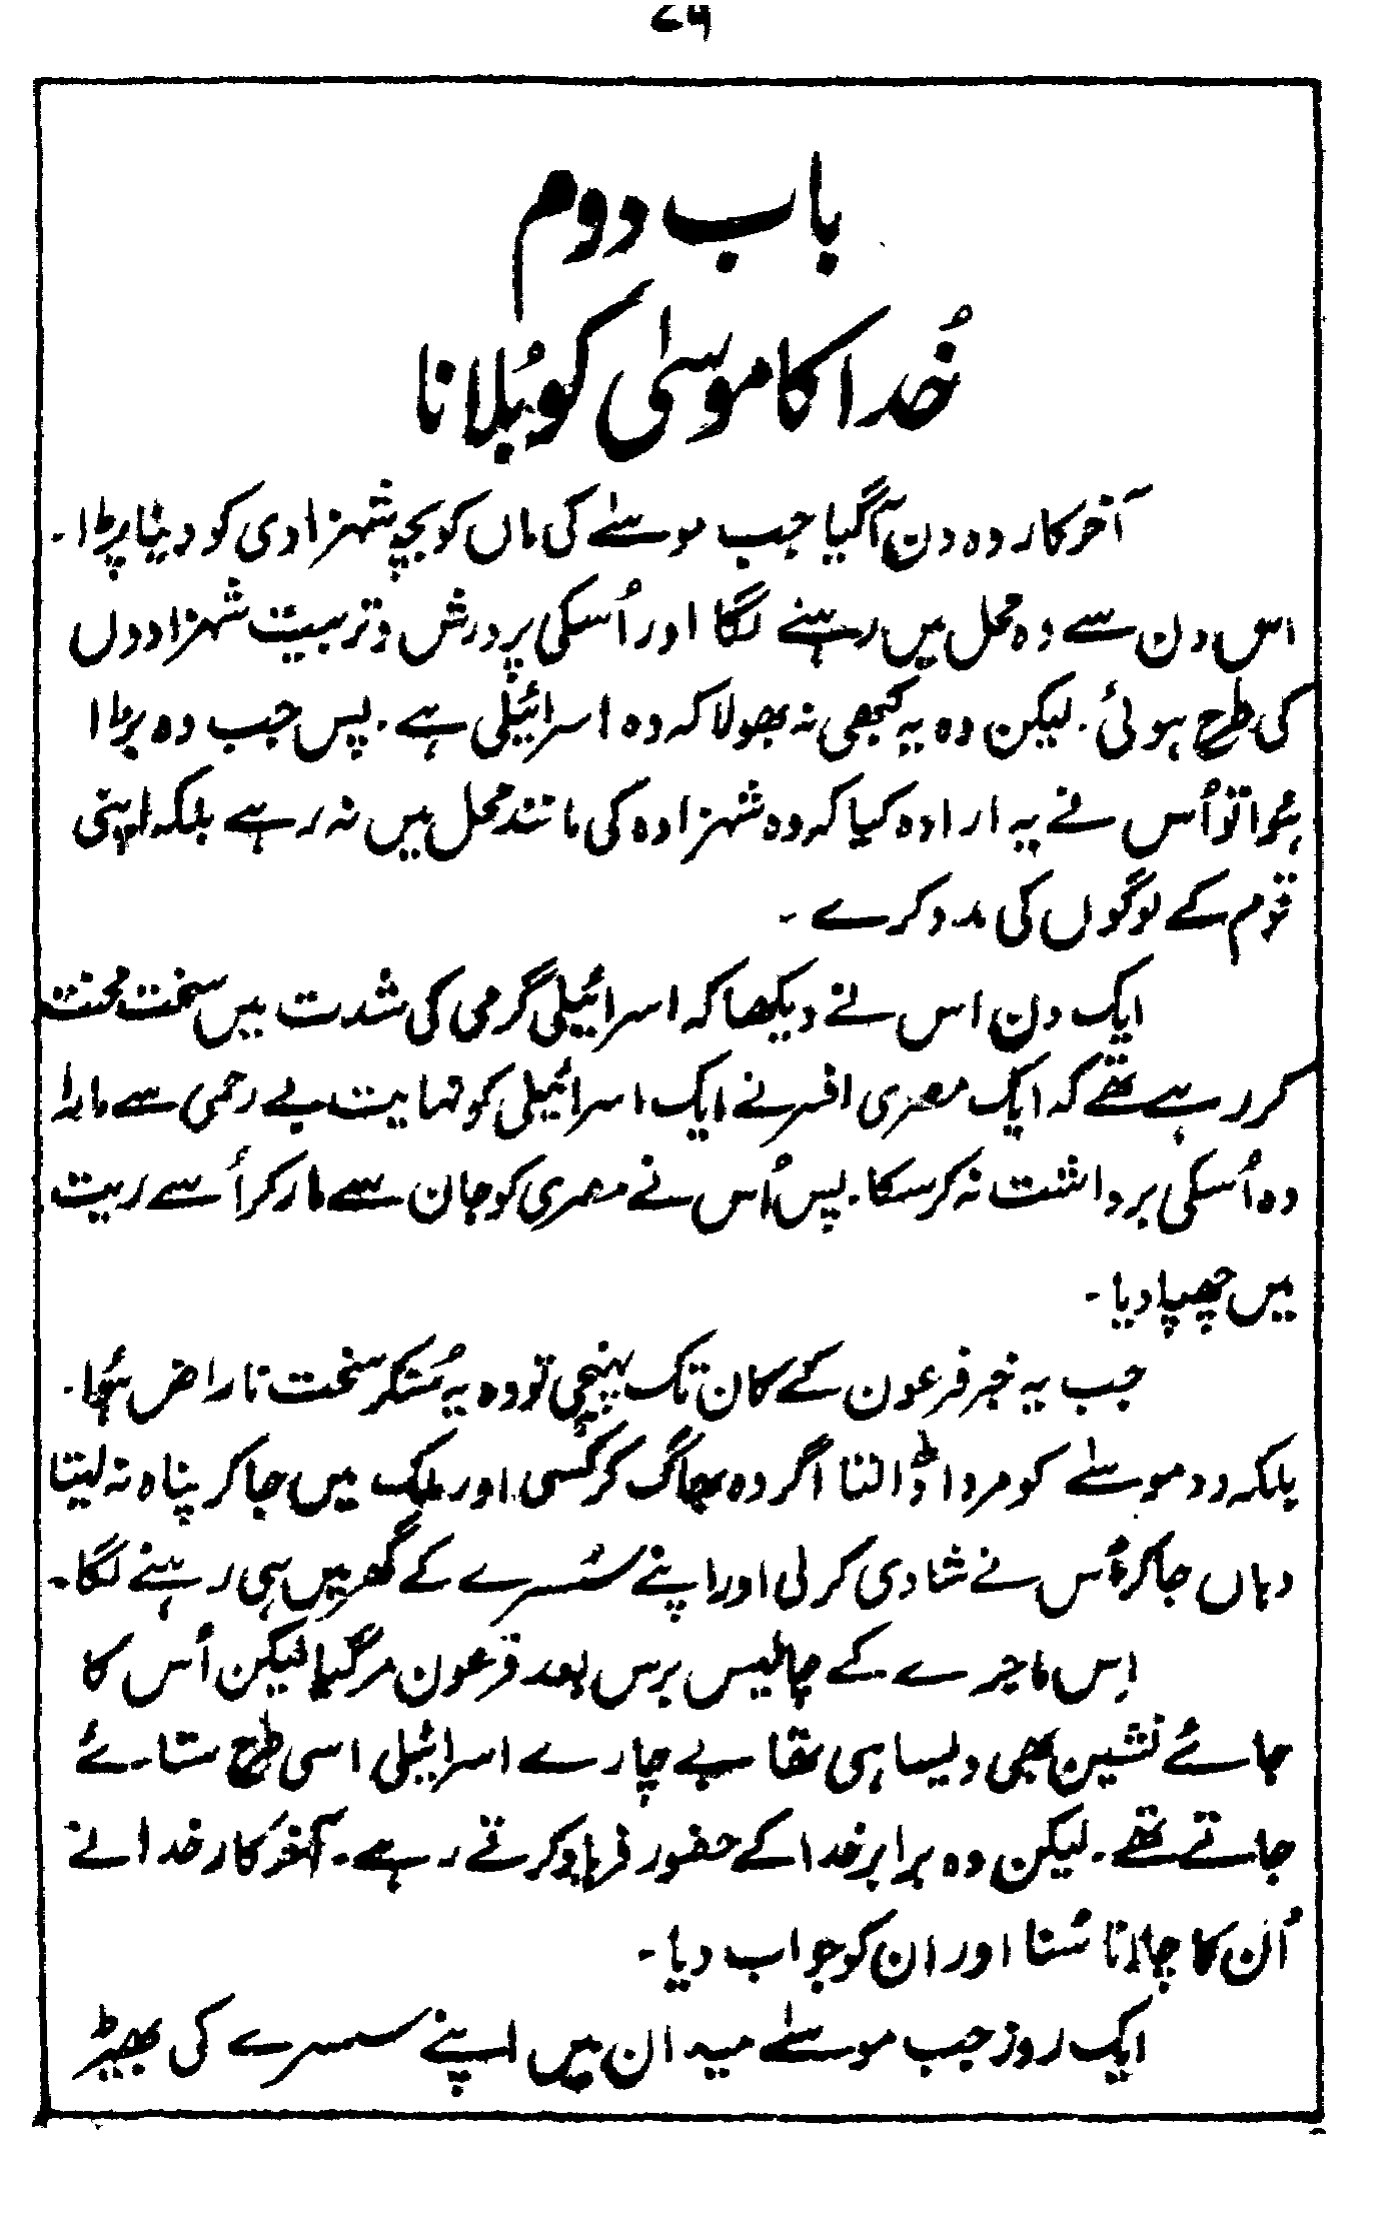 ۷۶
باب دوم
خُدا کا موسیٰ کو بُلانا
آخرکار وہ دن آگیا جب موسےٰ کی ماں کو بچہ شہزادی کو دینا پڑا۔
اس دن سے وہ محل میں رہنے لگا اور اُسکی پرورش و تربیت شہزادوں
کی طرح ہوئی۔ لیکن وہ یہ کبھی نہ بھولا کہ وہ اسرائیلی ہے۔ پس جب وہ بڑا
ہؤا تو اُس نے یہ ارادہ کیا کہ وہ شہزادہ کی مانند محل میں نہ رہے بلکہ اپنی
قوم کے لوگوں کی مدد کرے ۔
ایک دن اس نے دیکھا کہ اسرائیلی گرمی کی شدت میں سخت محنت
کر رہے تھے کہ ایک مصری افسر نے ایک اسرائیلی کو نہایت بے رحمی سے مارا
وہ اُسکی برداشت نہ کرسکا۔ پس اُس نے مصری کو جان سے مار کر اُسے ریت
میں چھپا دیا ۔
جب یہ خبر فرعون کے کان تک پہنچی تو وہ یہ سُنکر سخت ناراض ہؤا۔
بلکہ وہ موسےٰ کو مروا ڈالتا اگر وہ بھاگ کر کسی اور ملک میں جا کر پناہ نہ لیتا
وہاں جاکر اُس نے شادی کرلی اور اپنے سُسرے کے گھر میں ہی رہنے لگا۔
اِس ماجرے کے چالیس برس بعد فرعون مرگیا لیکن اُس کا
جائے نشین بھی ویسا ہی تھا بے چارے اسرائیلی اسی طرح ستائے
جاتے تھے۔ لیکن وہ برابر خدا کے حضور فریاد کرتے رہے۔ آخرکار خدا نے
اُن کا چلانا سُنا اور ان کو جواب دیا۔
ایک روز جب موسےٰ میدان میں اپنے سسرے کی بھیڑ